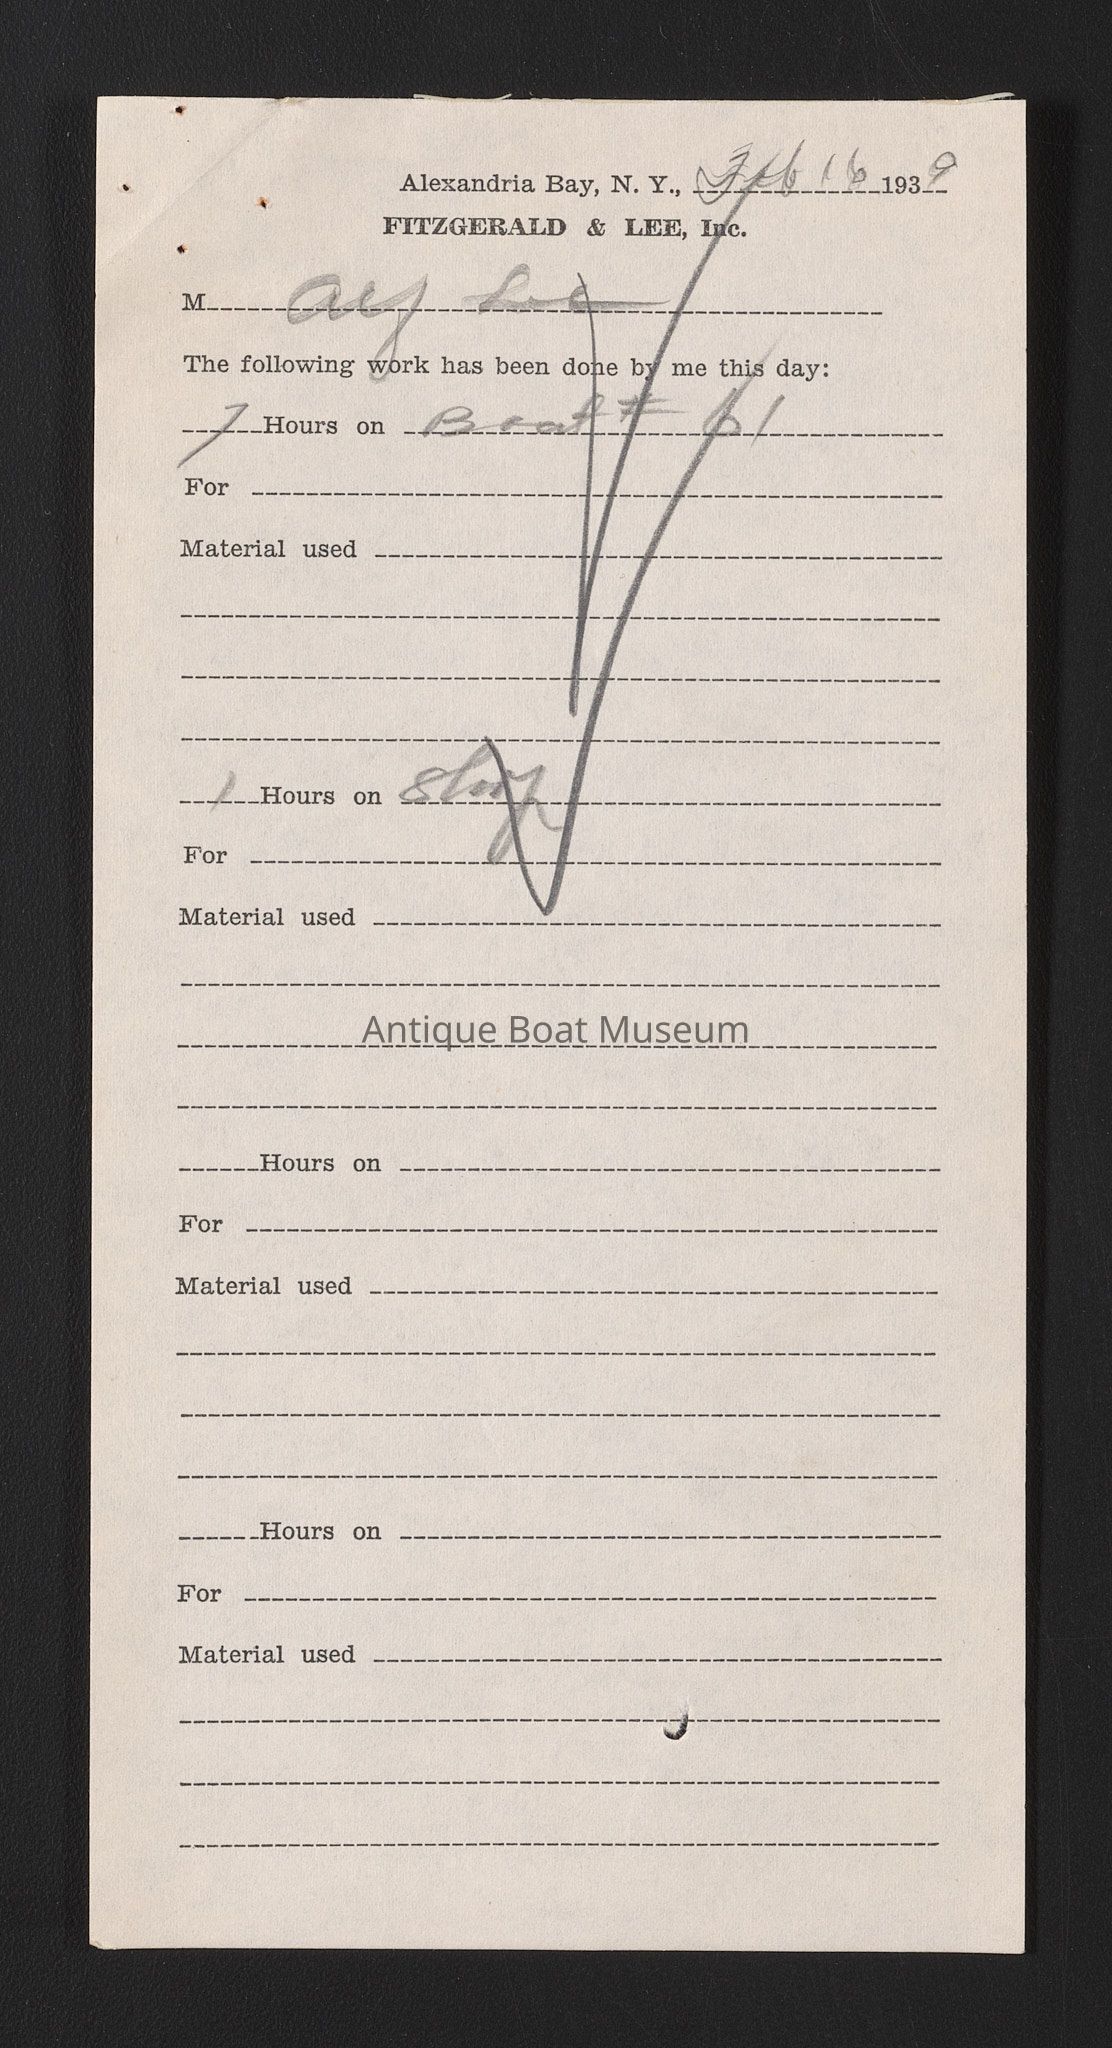 Alexandria Bay, N. Y., Feb 16 1939
FITZGERALD & LEE, Inc.
M Alf Lee
The following work has been done by me this day:
7 Hours on Boat # 61
For
Material used
1 Hours on Shop
For
Material used
Antique Boat Museum
Hours on
For
Material used
Hours on
For
Material used